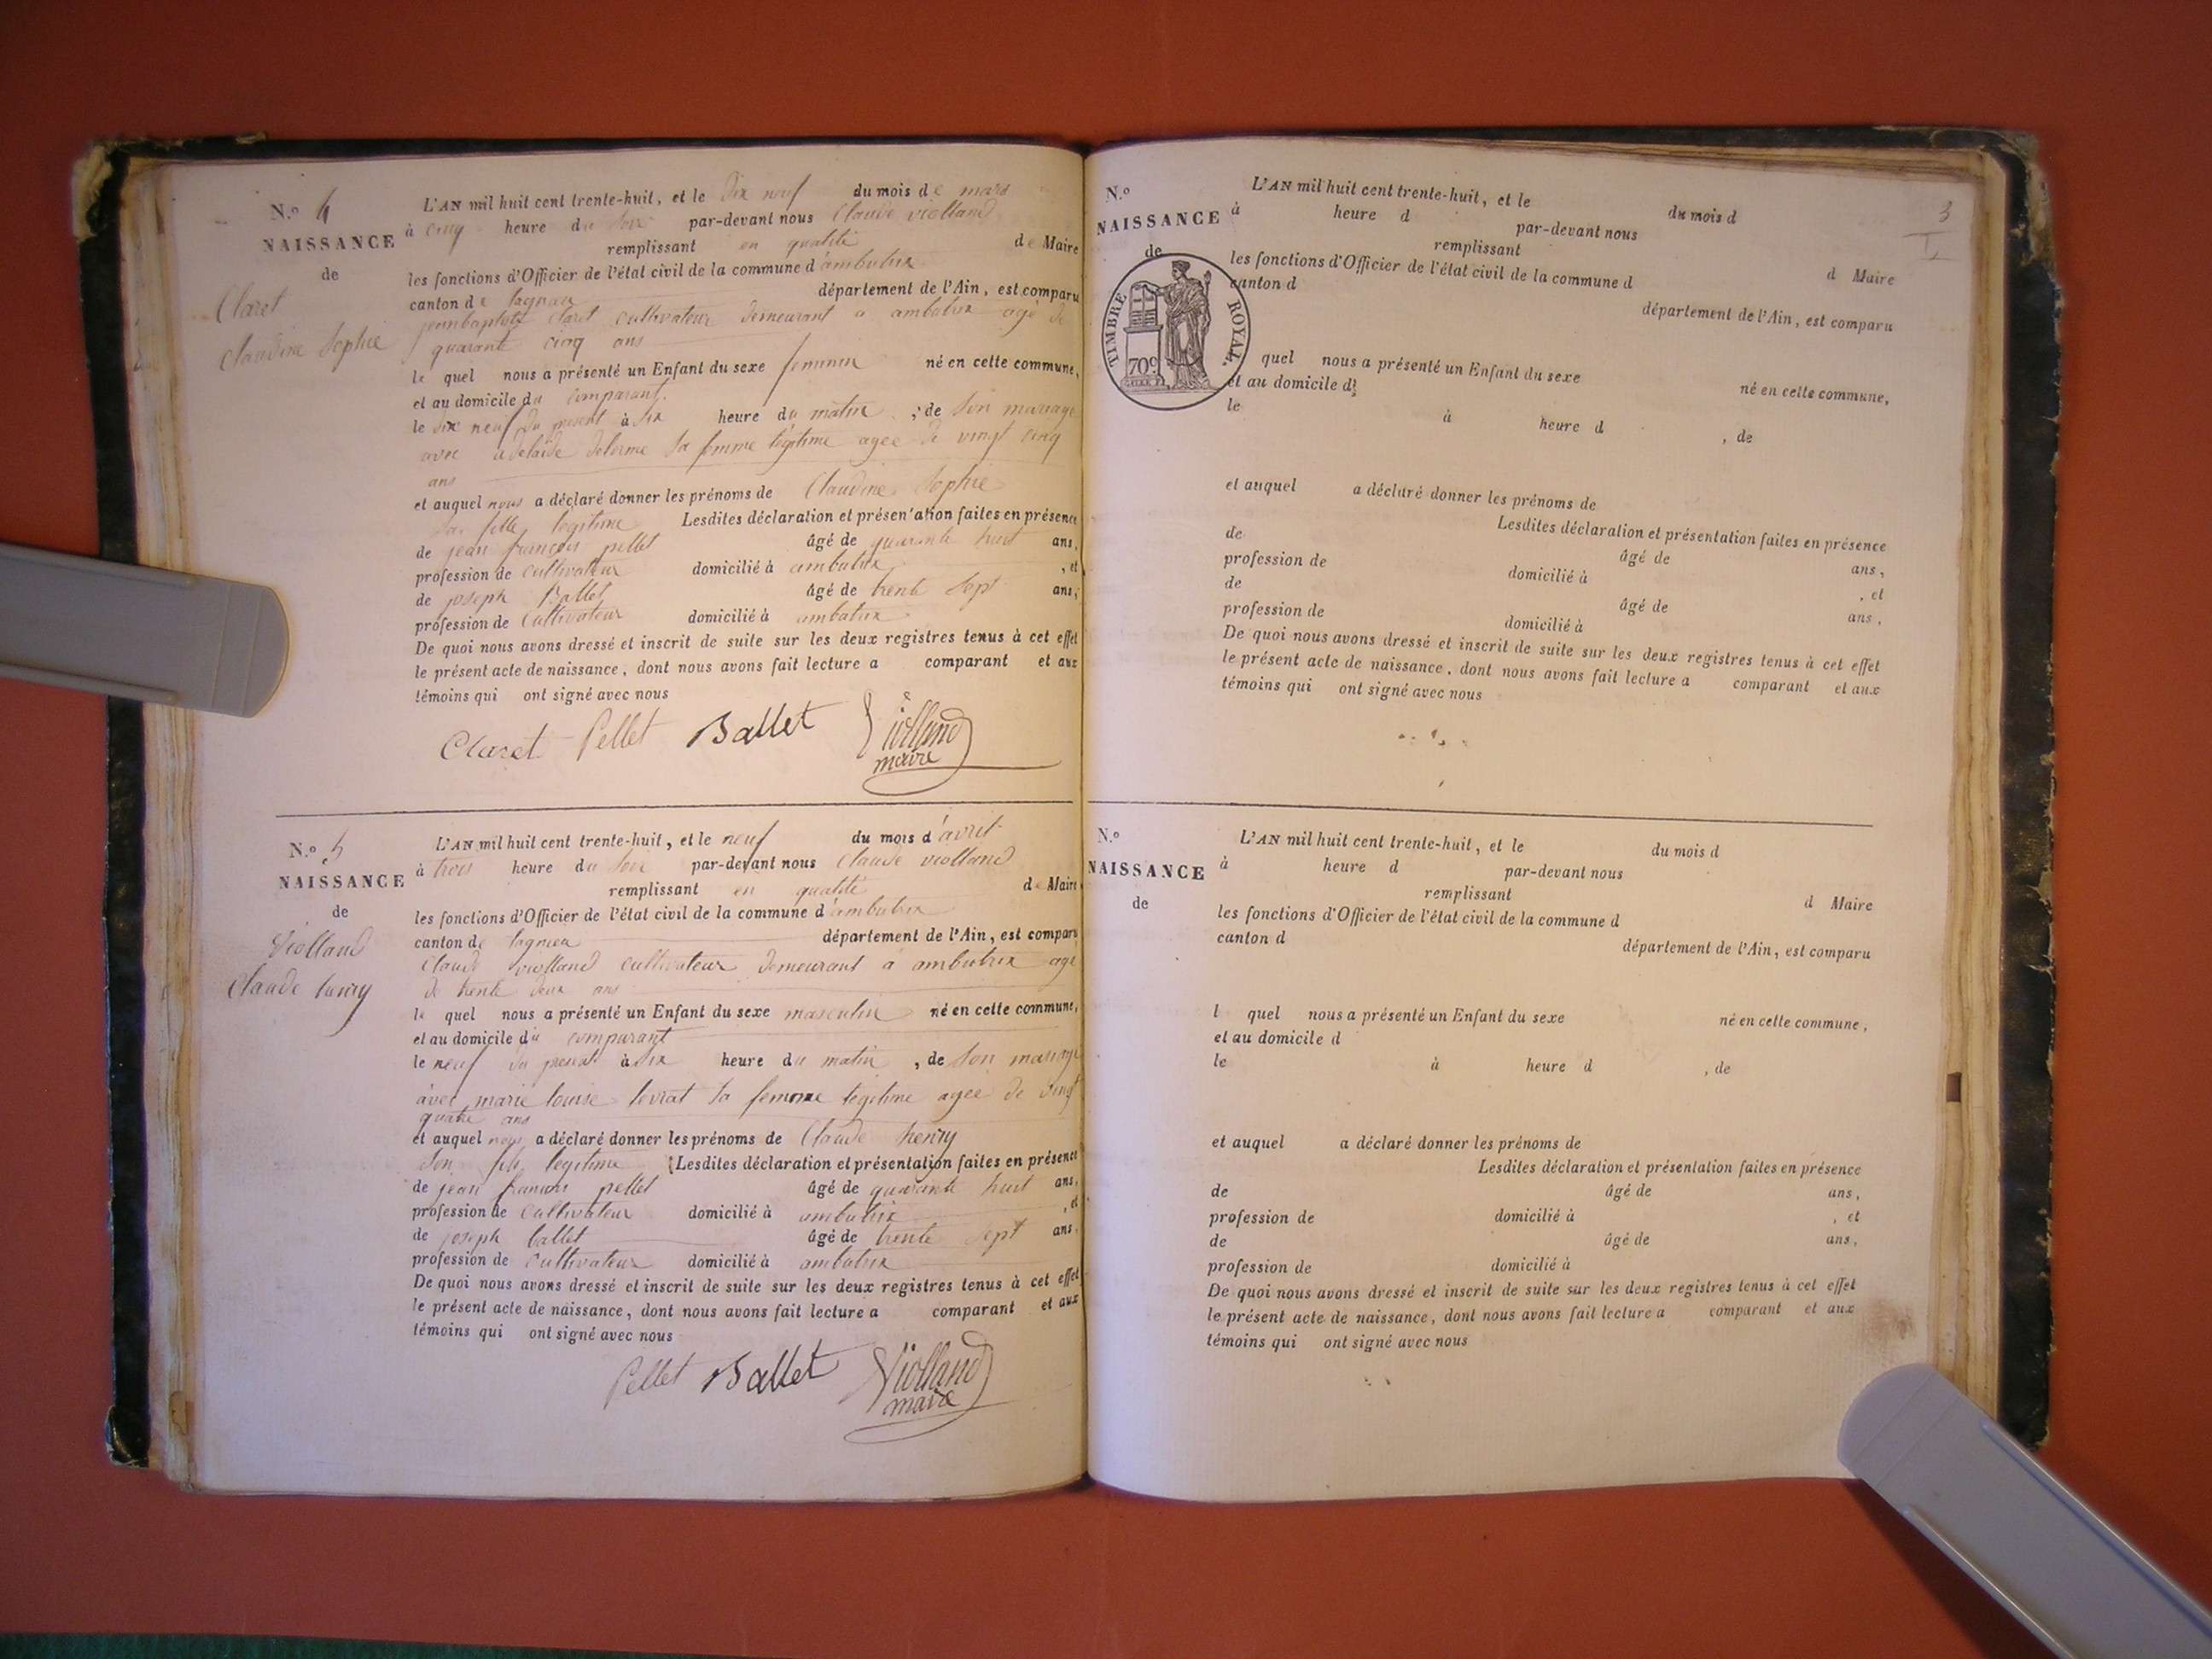 N.o 4
NAISSANCE
de
Claret
Claudine Sophie
L'AN mil huit cent trente-huit, et le dix neuf du mois de mars
à cinq heure du soir par-devant nous Claude violland
remplissant en qualité de Maire
les fonctions d'Officier de l'état civil de la commune d'ambutrix
canton de lagnieu département de l'Ain, est comparu
jeanbaptiste Claret cultivateur demeurant a ambutrix agé de
quarante cinq ans
le quel nous a présenté un Enfant du sexe feminin né en cette commune,
et au domicile du comparant
le dix neuf du present à six heure du matin , de son mariage
avec adelaïde delorme sa femme légitime agée de vingt cinq
ans
et auquel nous a déclaré donner les prénoms de Claudine Sophie
sa fille legitime Lesdites déclaration et présen'ation faites en présence
de jean françois pellet âgé de quarante huit ans,
profession de cultivateur domicilié à ambutrix , et
de joseph Ballet âgé de trente sept ans,
profession de Cultivateur domicilié à ambutrix
De quoi nous avons dressé et inscrit de suite sur les deux registres tenus à cet effet
le présent acte de naissance, dont nous avons fait lecture a comparant et aux
témoins qui ont signé avec nous
Claret Pellet Ballet Violland
maire
N.o 5
NAISSANCE
de
Violland
Claude henry
L'AN mil huit cent trente-huit, et le neuf du mois d'avril
à trois heure du soir par-devant nous Claude violland
remplissant en qualité de Maire
les fonctions d'Officier de l'état civil de la commune d'ambutrix
canton de lagnieu département de l'Ain, est comparu
Claude violland cultivateur demeurant à ambutrix agé
de trente deux ans
le quel nous a présenté un Enfant du sexe masculin né en cette commune,
et au domicile du comparant
le neuf du present à six heure du matin , de son mariage
avec marie louise levrat sa femme légitime agée de vingt
quatre ans
et auquel nous a déclaré donner les prénoms de Claude henry
son fils legitime Lesdites déclaration et présentation faites en présence
de jean françois pellet âgé de quarante huit ans,
profession de Cultivateur domicilié à ambutrix , et
de joseph ballet âgé de trente sept ans,
profession de Cultivateur domicilié à ambutrix
De quoi nous avons dressé et inscrit de suite sur les deux registres tenus à cet effet
le présent acte de naissance, dont nous avons fait lecture a comparant et aux
témoins qui ont signé avec nous
Pellet Ballet Violland
maire
3
N.o
NAISSANCE
de
TIMBRE ROYAL.
70c
L'AN mil huit cent trente-huit, et le du mois d
à heure d par-devant nous
remplissant d Maire
les fonctions d'Officier de l'état civil de la commune d
canton d département de l'Ain, est comparu
quel nous a présenté un Enfant du sexe né en cette commune,
et au domicile d
le à heure d , de
et auquel a déclaré donner les prénoms de
Lesdites déclaration et présentation faites en présence
de âgé de ans,
profession de domicilié à , et
de âgé de ans,
profession de domicilié à
De quoi nous avons dressé et inscrit de suite sur les deux registres tenus à cet effet
le présent acte de naissance, dont nous avons fait lecture a comparant et aux
témoins qui ont signé avec nous
N.o
NAISSANCE
de
L'AN mil huit cent trente-huit, et le du mois d
à heure d par-devant nous
remplissant d Maire
les fonctions d'Officier de l'état civil de la commune d
canton d département de l'Ain, est comparu
l quel nous a présenté un Enfant du sexe né en cette commune,
et au domicile d
le à heure d , de
et auquel a déclaré donner les prénoms de
Lesdites déclaration et présentation faites en présence
de âgé de ans,
profession de domicilié à , et
de âgé de ans,
profession de domicilié à
De quoi nous avons dressé et inscrit de suite sur les deux registres tenus à cet effet
le présent acte de naissance, dont nous avons fait lecture a comparant et aux
témoins qui ont signé avec nous